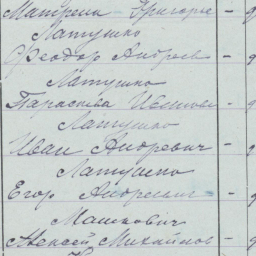 Матрена Григорье - 
Латушко
Феодор Андреев -
Латушко
Параскева -
Латушко
Иван Андреевич -
Латушко
Егор Андреевич -
Машкович
Алексей Михайлов -